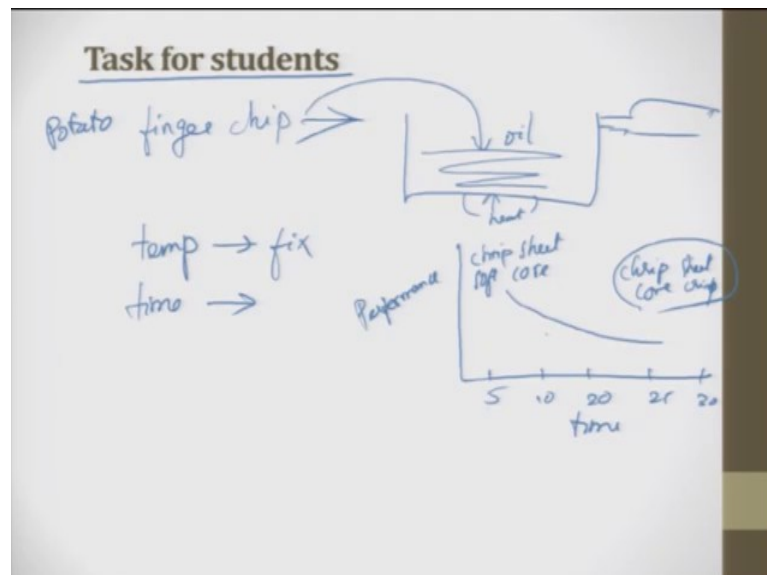 Task for students
Potato finger chip
oil
heat
temp → fix
time →
Performance
chrip sheet
soft core
chrip sheet
core crisp
5 10 20 25 30
time